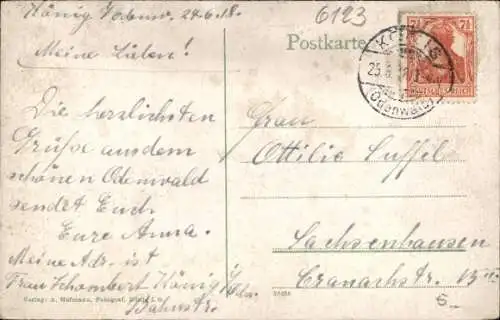 König Odenw. 24.6.18.
Meine Lieben!
Die herzlichsten
Grüße aus dem
schönen Odenwald
sendet Euch
Eure Anna.
Meine Adr. ist
Frau Schombert König i/Odw.
Bahnstr.
Verlag: A. Hofmann, Fotograf, König i. O.
6123
Postkarte
KÖNIG
25.6.18
(Odenwald)
7½ 7½
Frau
Ottilie Suffil
Sachsenhausen
Cranachstr. 13 III